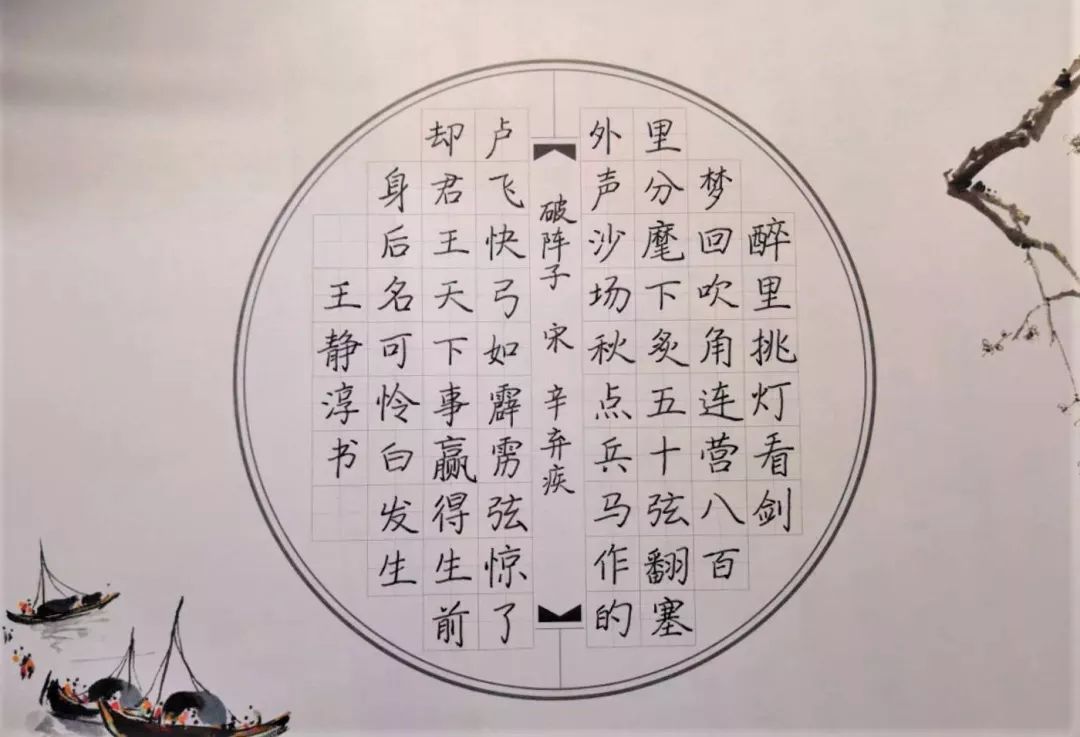 醉里挑灯看剑
梦回吹角连营八百
里分麾下炙五十弦翻塞
外声沙场秋点兵马作的
破阵子 宋 辛弃疾
卢飞快弓如霹雳弦惊了
却君王天下事赢得生前
身后名可怜白发生
王静淳书